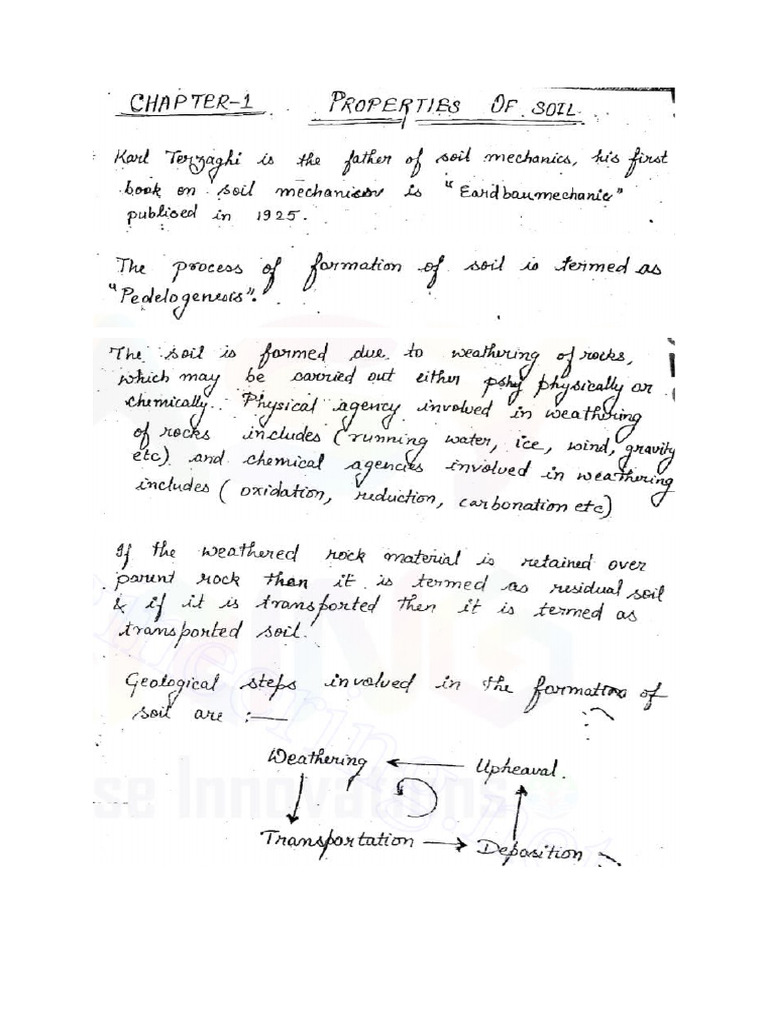 CHAPTER-1 PROPERTIES OF SOIL
Karl Terzaghi is the father of soil mechanics, his first
book on soil mechanics is "Eardbaumechanic"
publised in 1925.
The process of formation of soil is termed as
"Pedelogenesis".
The soil is formed due to weathering of rocks,
which may be carried out either pshy physically or
chemically. Physical agency involved in weathering
of rocks includes (running water, ice, wind, gravity
etc) and chemical agencies involved in weathering
includes ( oxidation, reduction, carbonation etc)
If the weathered rock material is retained over
parent rock than it is termed as residual soil
& if it is transported then it is termed as
transported soil.
Geological steps involved in the formation of
soil are :—
Weathering ← Upheaval.
Transportation → Deposition
se Innovations